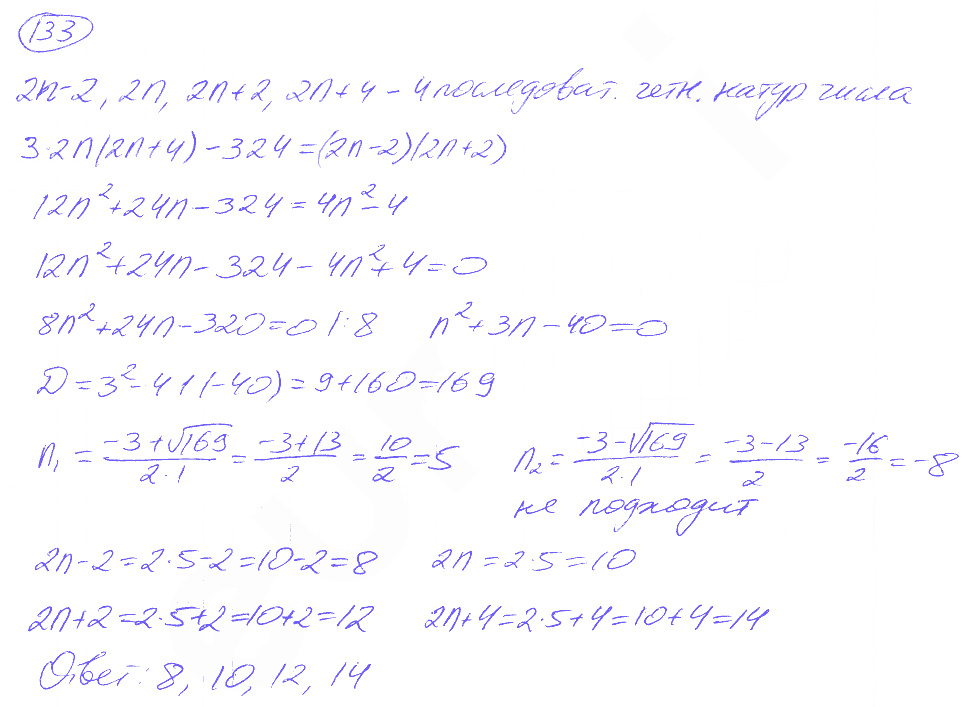 133
2n-2, 2n, 2n+2, 2n+4 - 4 последоват. четн. натур числа
3·2n(2n+4)-324=(2n-2)(2n+2)
12n²+24n-324=4n²-4
12n²+24n-324-4n²+4=0
8n²+24n-320=0 |:8 n²+3n-40=0
D=3²-4·1·(-40)=9+160=169
n₁=(-3+√169)/(2·1)=(-3+13)/2=10/2=5 n₂=(-3-√169)/(2·1)=(-3-13)/2=-16/2=-8
не подходит
2n-2=2·5-2=10-2=8 2n=2·5=10
2n+2=2·5+2=10+2=12 2n+4=2·5+4=10+4=14
Ответ: 8, 10, 12, 14